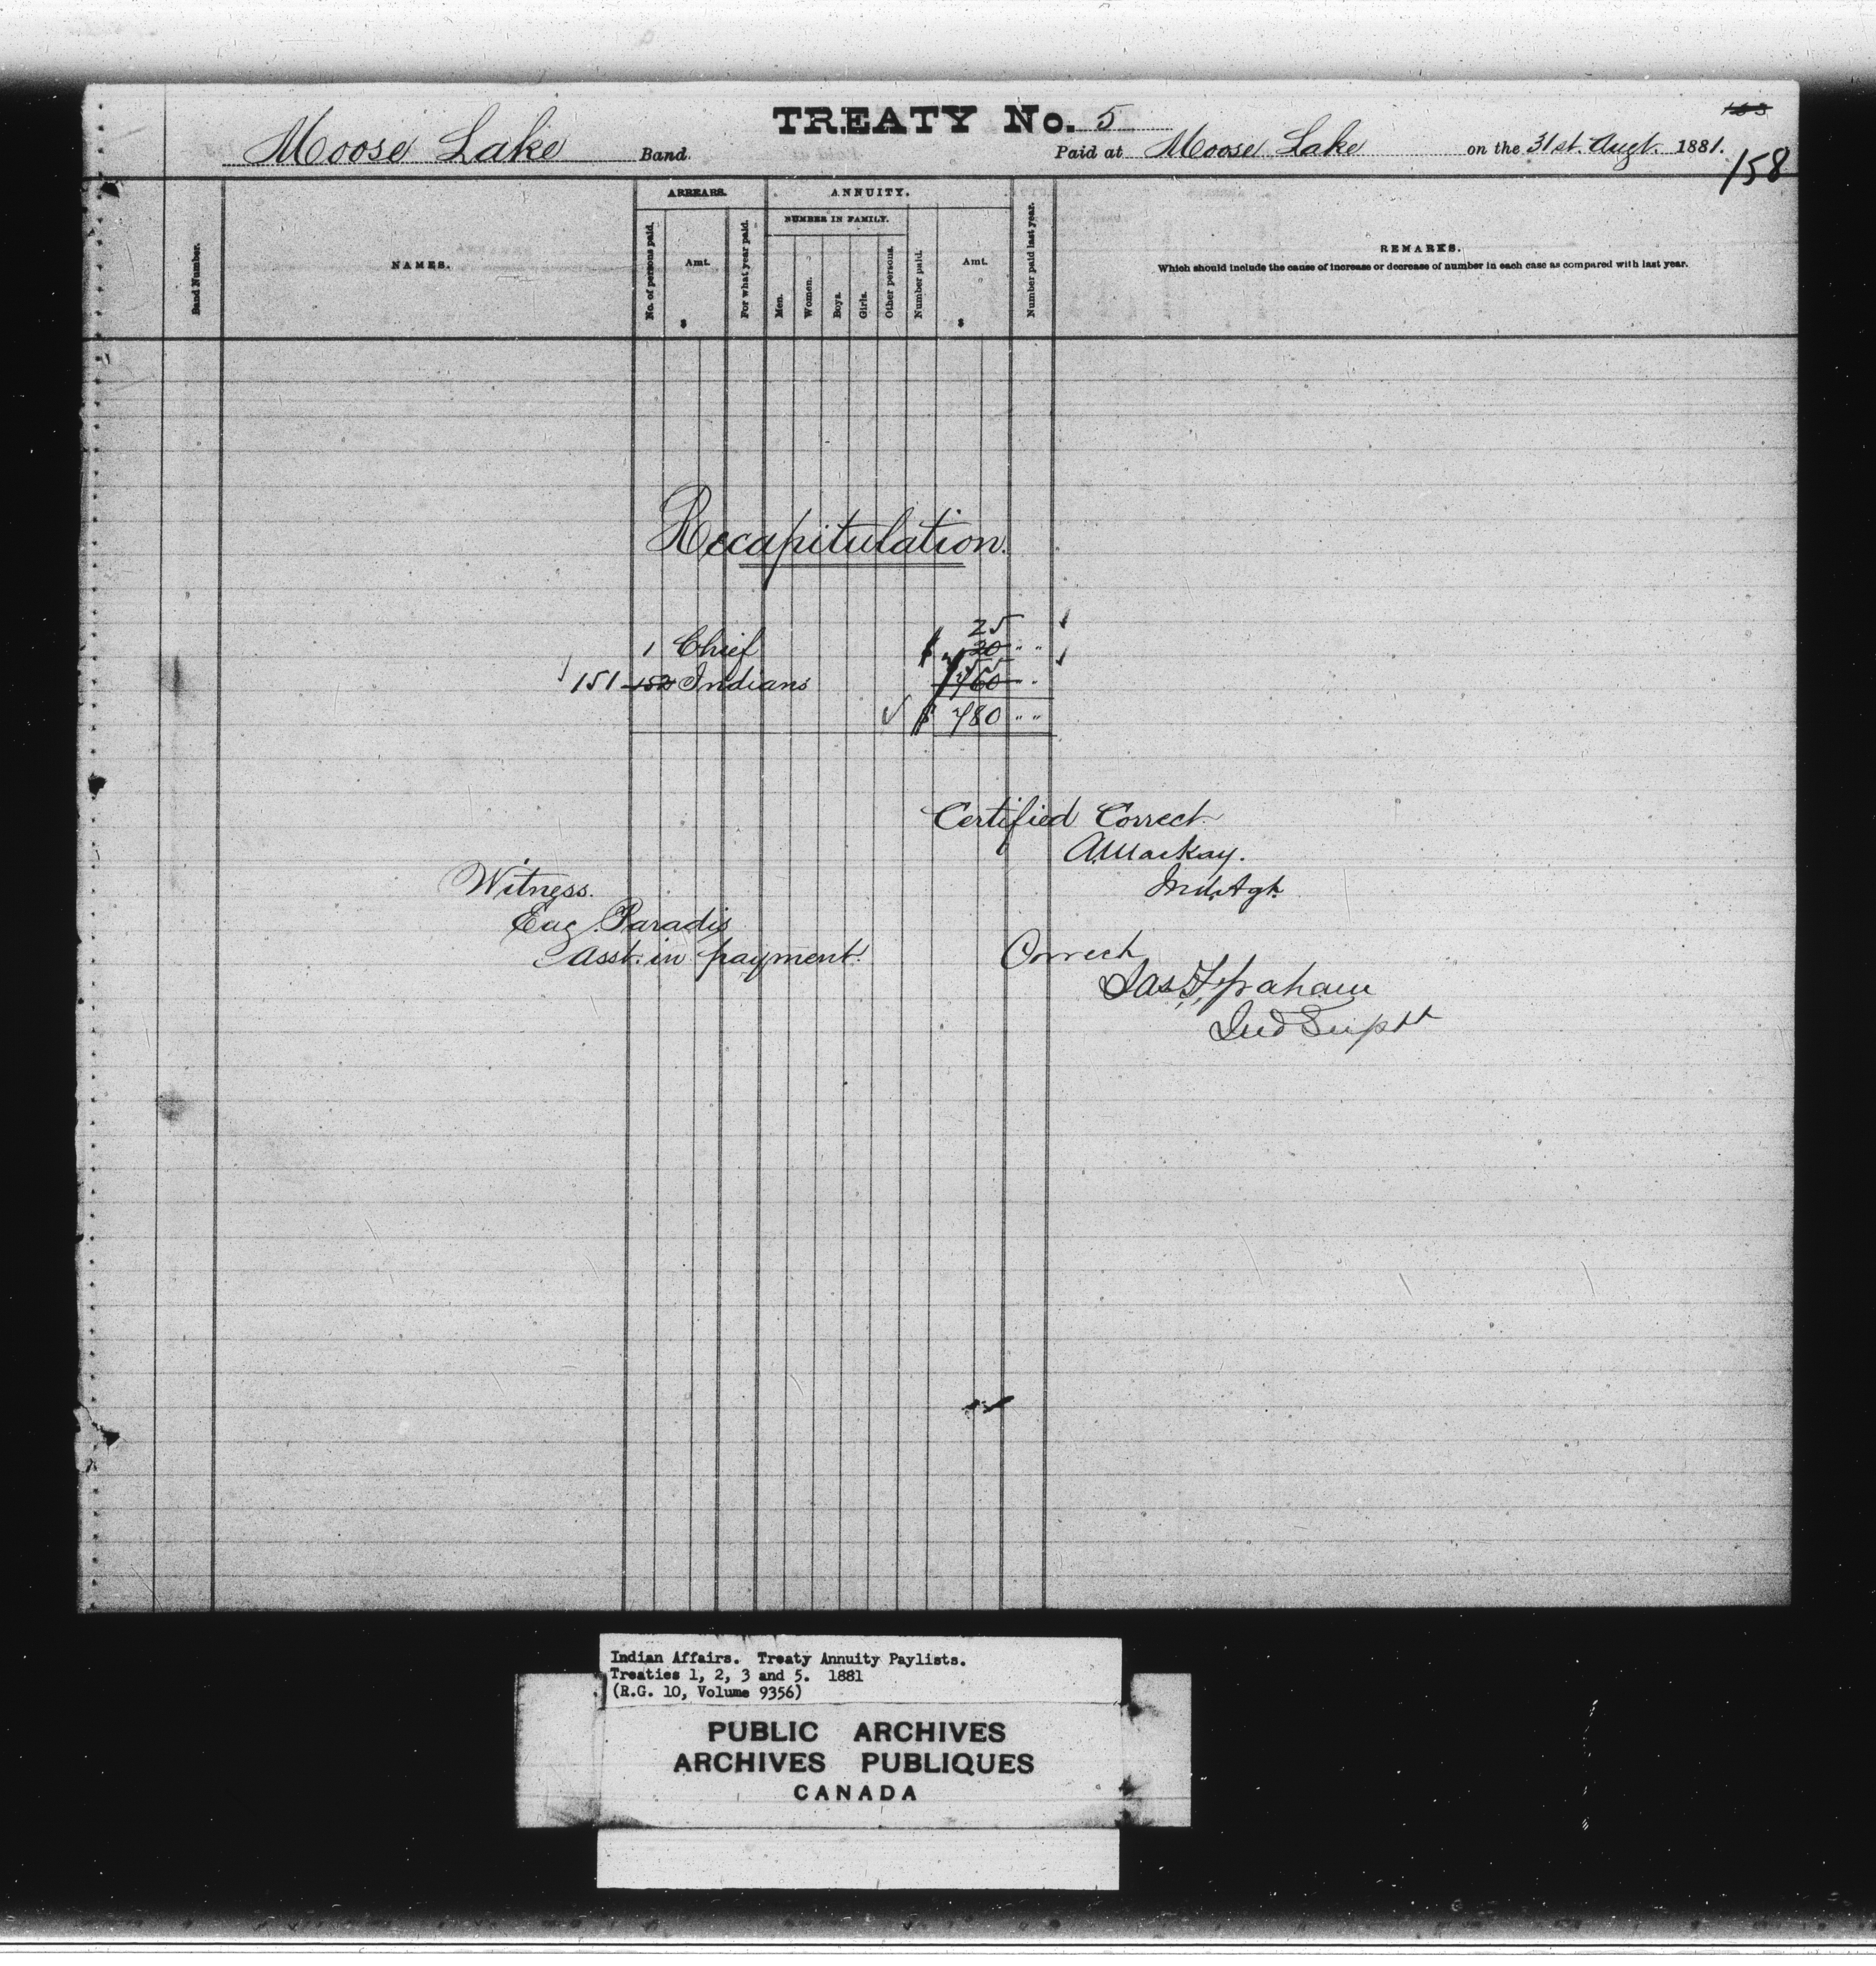 TREATY No. 5
163
Moose Lake Band.
Paid at Moose Lake on the 31st. Augt. 1881.
158
Band Number.
NAMES.
ARREARS.
No. of persons paid.
Amt.
$
For what year paid.
ANNUITY.
NUMBER IN FAMILY.
Men.
Women.
Boys.
Girls.
Other persons.
Number paid.
Amt.
$
Number paid last year.
REMARKS.
Which should include the cause of increase or decrease of number in each case as compared with last year.
Recapitulation.
25
1 Chief $ 20 " "
755
151 152 Indians 760 "
$ 780 " "
Certified Correct
A. Mackay.
Ind. Agt.
Witness.
Eug. Paradis
Asst. in payment.
Correct
Jas F Graham
Ind Suptt
Indian Affairs. Treaty Annuity Paylists.
Treaties 1, 2, 3 and 5. 1881
(R.G. 10, Volume 9356)
PUBLIC ARCHIVES
ARCHIVES PUBLIQUES
CANADA